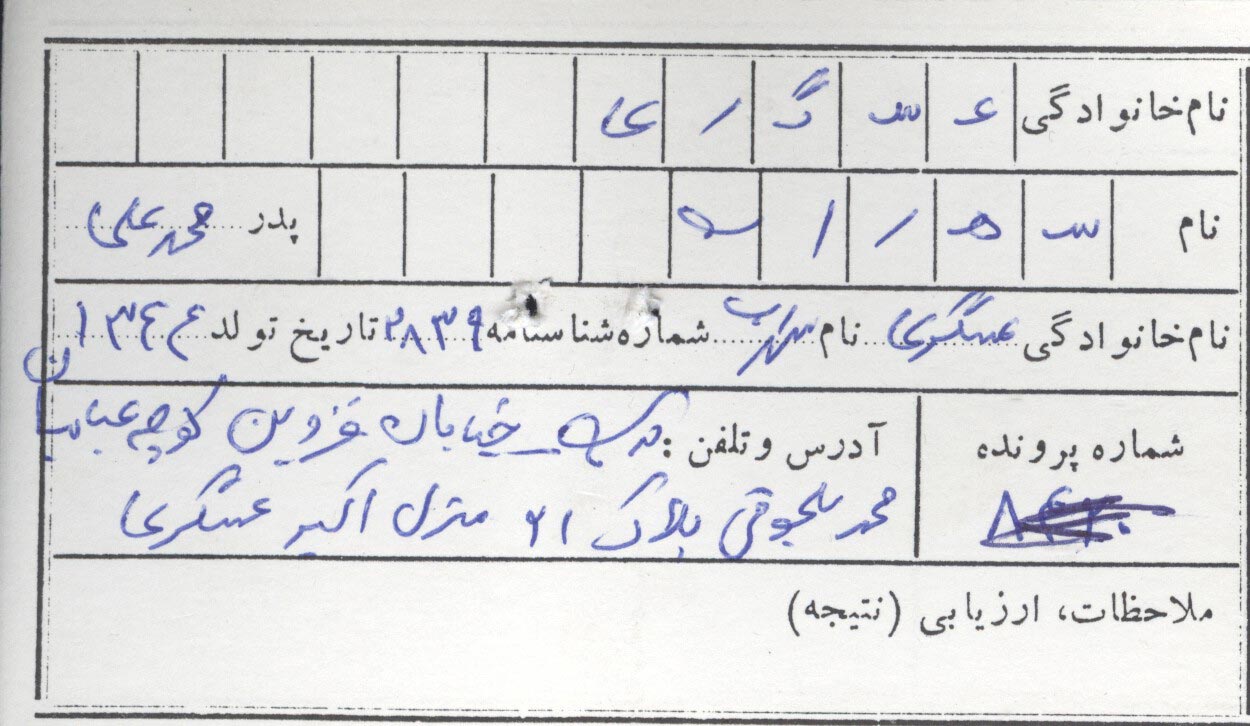 نام خانوادگی ع س گ ر ی
نام س ه ر ا ب پدر محمدعلی
نام خانوادگی عسگری نام سهراب شماره شناسنامه ۲۸۳۹ تاریخ تولد ۱۳۴۴
شماره پرونده
آدرس و تلفن : خیابان قزوین کوچه عباسیان
محمد سلجوقی پلاک ۲۱ منزل اکبر عسگری
ملاحظات، ارزیابی (نتیجه)